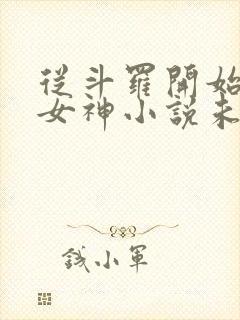 從斗羅開始
女神小說未
錢小軍